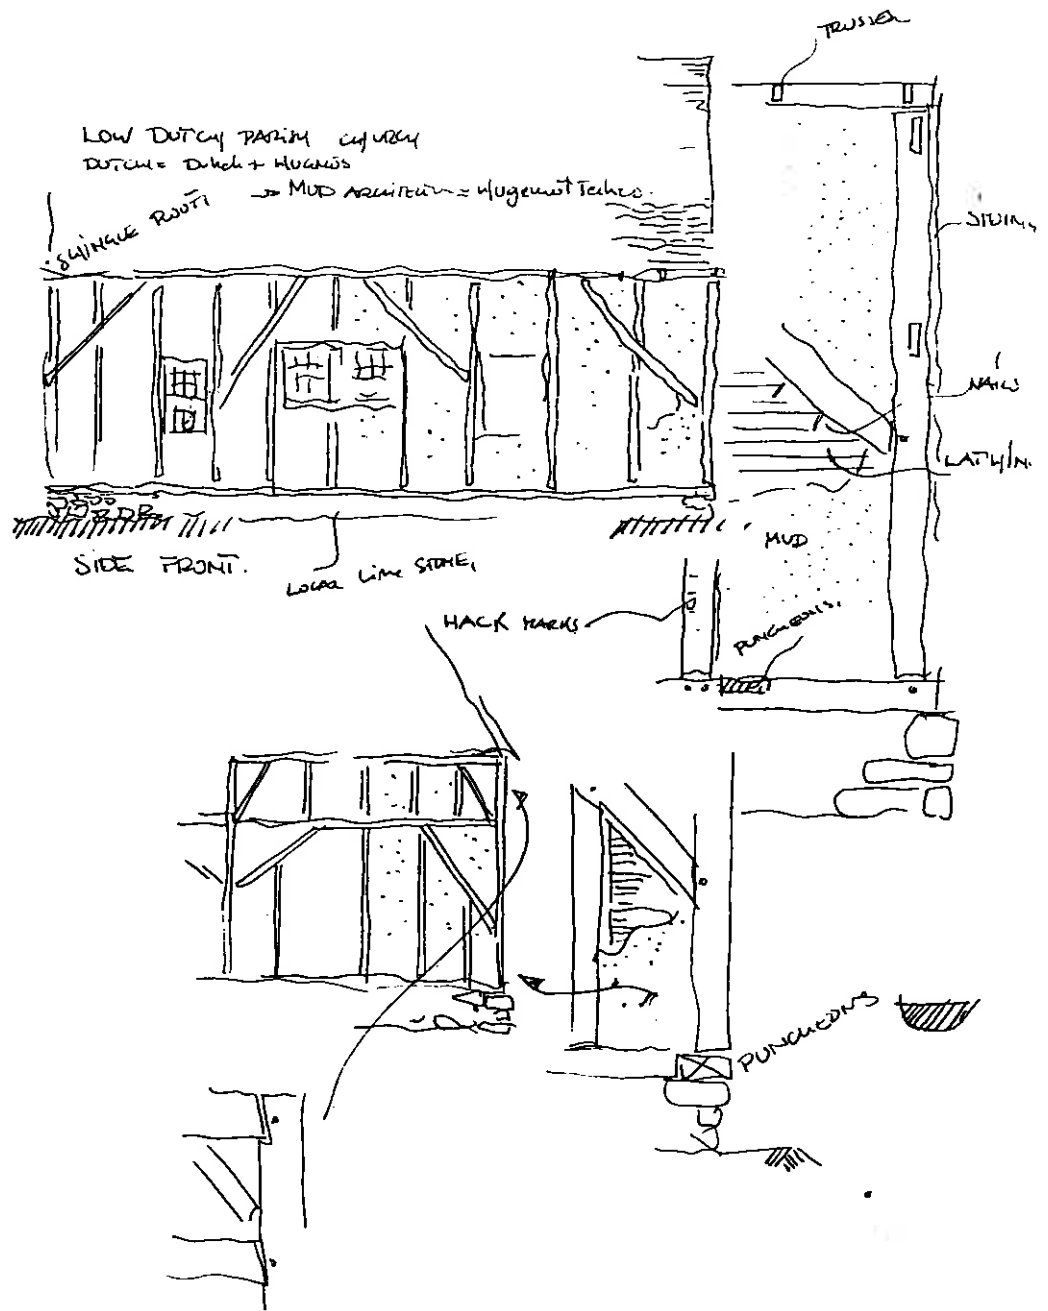 TRUSSES
LOW DUTCH PARISH CHURCH
DUTCH = Dutch + HUGNOS
MUD = Hugenot
SHINGLE
NAILS
LATHIN.
MUD
SIDE FRONT.
LOCAL Lime STONE,
HACK MARKS
PUNCHEONS.
PUNCHEONS